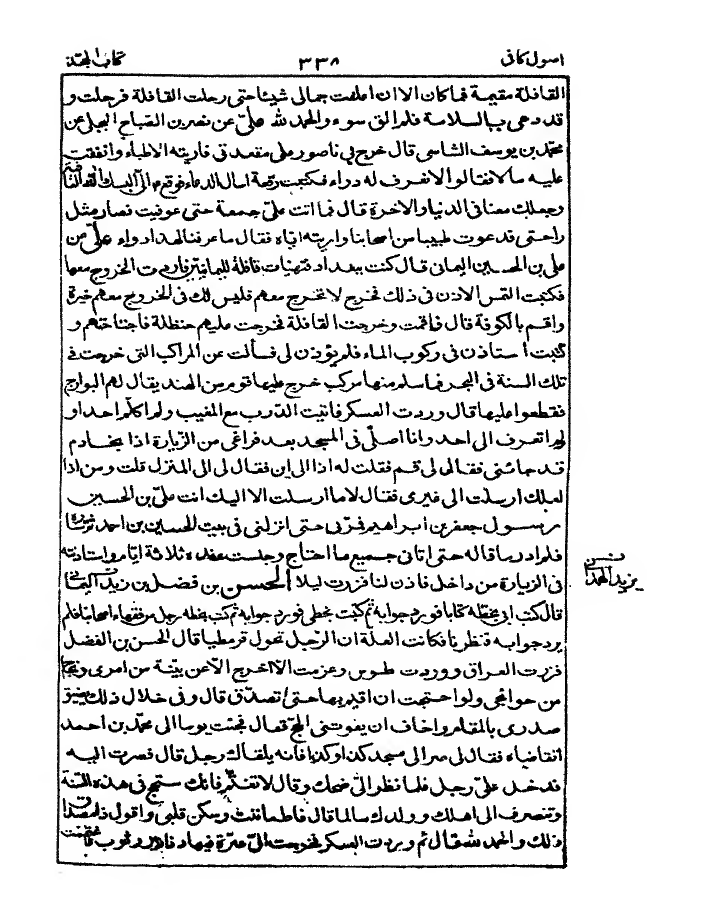 اصول كافى ٣٣٨ كتاب الحجة
القافلة مقيمة فما كان الا ان اعلفت جمالى شيئا حتى رحلت القافلة فرحلت و
قد دعى بالسلامة فلم الق سوء والحمد لله علىّ عن نصر بن الصباح البجلى عن
محمّد بن يوسف الشاسى قال خرج بى ناصور على مقعدتى فاريته الاطباء وانفقت
عليه مالا فقالوا لا نعرف له دواء فكتبت رقعة اسال الدعاء فوقع ع الى البسك الله العافية
وجعلك معنا فى الدنيا والاخرة قال فما اتت علىّ جمعة حتى عوفيت فصار مثل
راحتى فدعوت طبيبا من اصحابنا واريته اياه فقال ما عرفنا لهذا دواء علىّ عن
على بن الحسين اليمانى قال كنت ببغداد فتهيات قافلة لليمانيين فاردت الخروج معها
فكتبت التمس الاذن فى ذلك فخرج لا تخرج معهم فليس لك فى الخروج معهم خيرة
واقم بالكوفة قال فاقمت وخرجت القافلة فخرجت عليهم حنظلة فاجتاحتهم و
كتبت استاذن فى ركوب الماء فلم يؤذن لى فسألت عن المراكب التى خرجت فى
تلك السنة فى البحر فما سلم منها مركب خرج عليها قوم من الهند يقال لهم البوارج
فقطعوا عليها قال ووردت العسكر فاتيت الدّرب مع المغيب ولم اكلّم احدا و
لم اتعرف الى احد وانا اصلّى فى المسجد بعد فراغى من الزّيارة اذا بخادم
قد جائنى فقال لى قم فقلت له اذا الى اين فقال لى الى المنزل قلت ومن انا
لعلك ارسلت الى غيرى فقال لا ما ارسلت الا اليك انت علىّ بن الحسين
رسول جعفر بن ابراهيم فمرّ بى حتى انزلنى فى بيت الحسين بن احمد ثم سارّه
فلم ادر ما قال له حتى اتانى جميع ما احتاج وجلست عنده ثلاثة ايام واستاذنته
فى الزيارة من داخل فاذن لنا فزرت ليلا الحسن بن فضل بن زيد اليمانى
قال كتب ابى بخطّه كتابا فورد جوابه ثم كتبت بخطى فورد جوابه ثم كتب بخطه رجل من فقهاء اصحابنا فلم
يرد جوابه فنظرنا فكانت العلّة ان الرّجل تحول قرمطيا قال الحسن بن الفضل
فزرت العراق ووردت طوس وعزمت الا اخرج الّا عن بيّنة من امرى ونجاح
من حوائجى ولو احتجت ان اقيم بها حتى اتصدّق قال وفى خلال ذلك يضيق
صدرى بالمقام واخاف ان يفوتنى الحجّ قال فجئت يوما الى محمّد بن احمد
اتقاضاه فقال لى صر الى مسجد كذا وكذا فانه يلقاك رجل قال فصرت اليه
فدخل علىّ رجل فلما نظر الىّ ضحك وقال لا تغتمّ فانك ستحج فى هذه السّنة
وتنصرف الى اهلك وولدك سالما قال فاطماننت وسكن قلبى واقول ذا مصداق
ذلك والحمد لله قال ثم وردت العسكر فخرجت الىّ صرّة فيها دنانير وثوب فاغتممت
يزيد الهمدانى